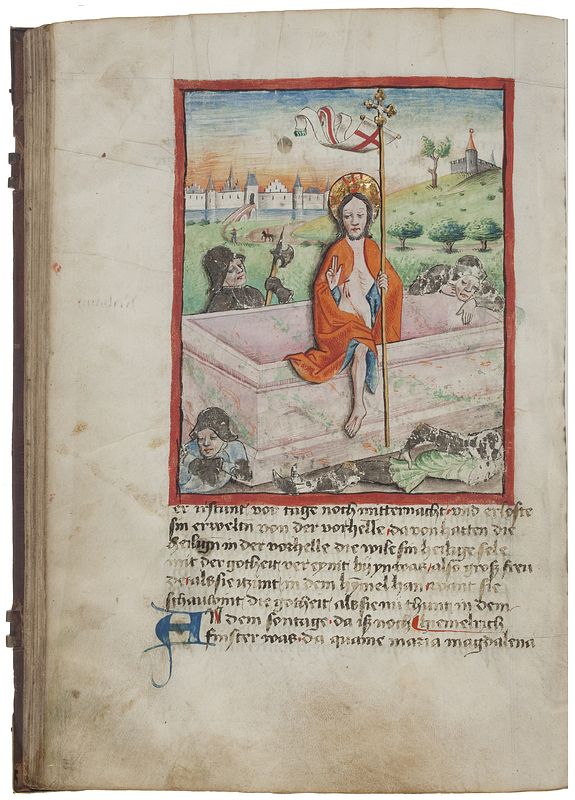 er irstunt vor tage noch mitternacht und erloste
sin erweltn von der vorhelle da von hatten die
heilign in der vorhelle die wile sin heilige sele
mit der gotheit vereynt by yn was also groß freu
de als sie itzunt in dem hymel han want sie
schauwint die gotheit als sie nu thunt in dem
An dem sontage da iß noch hemelrich
finster was da quame maria magdalena